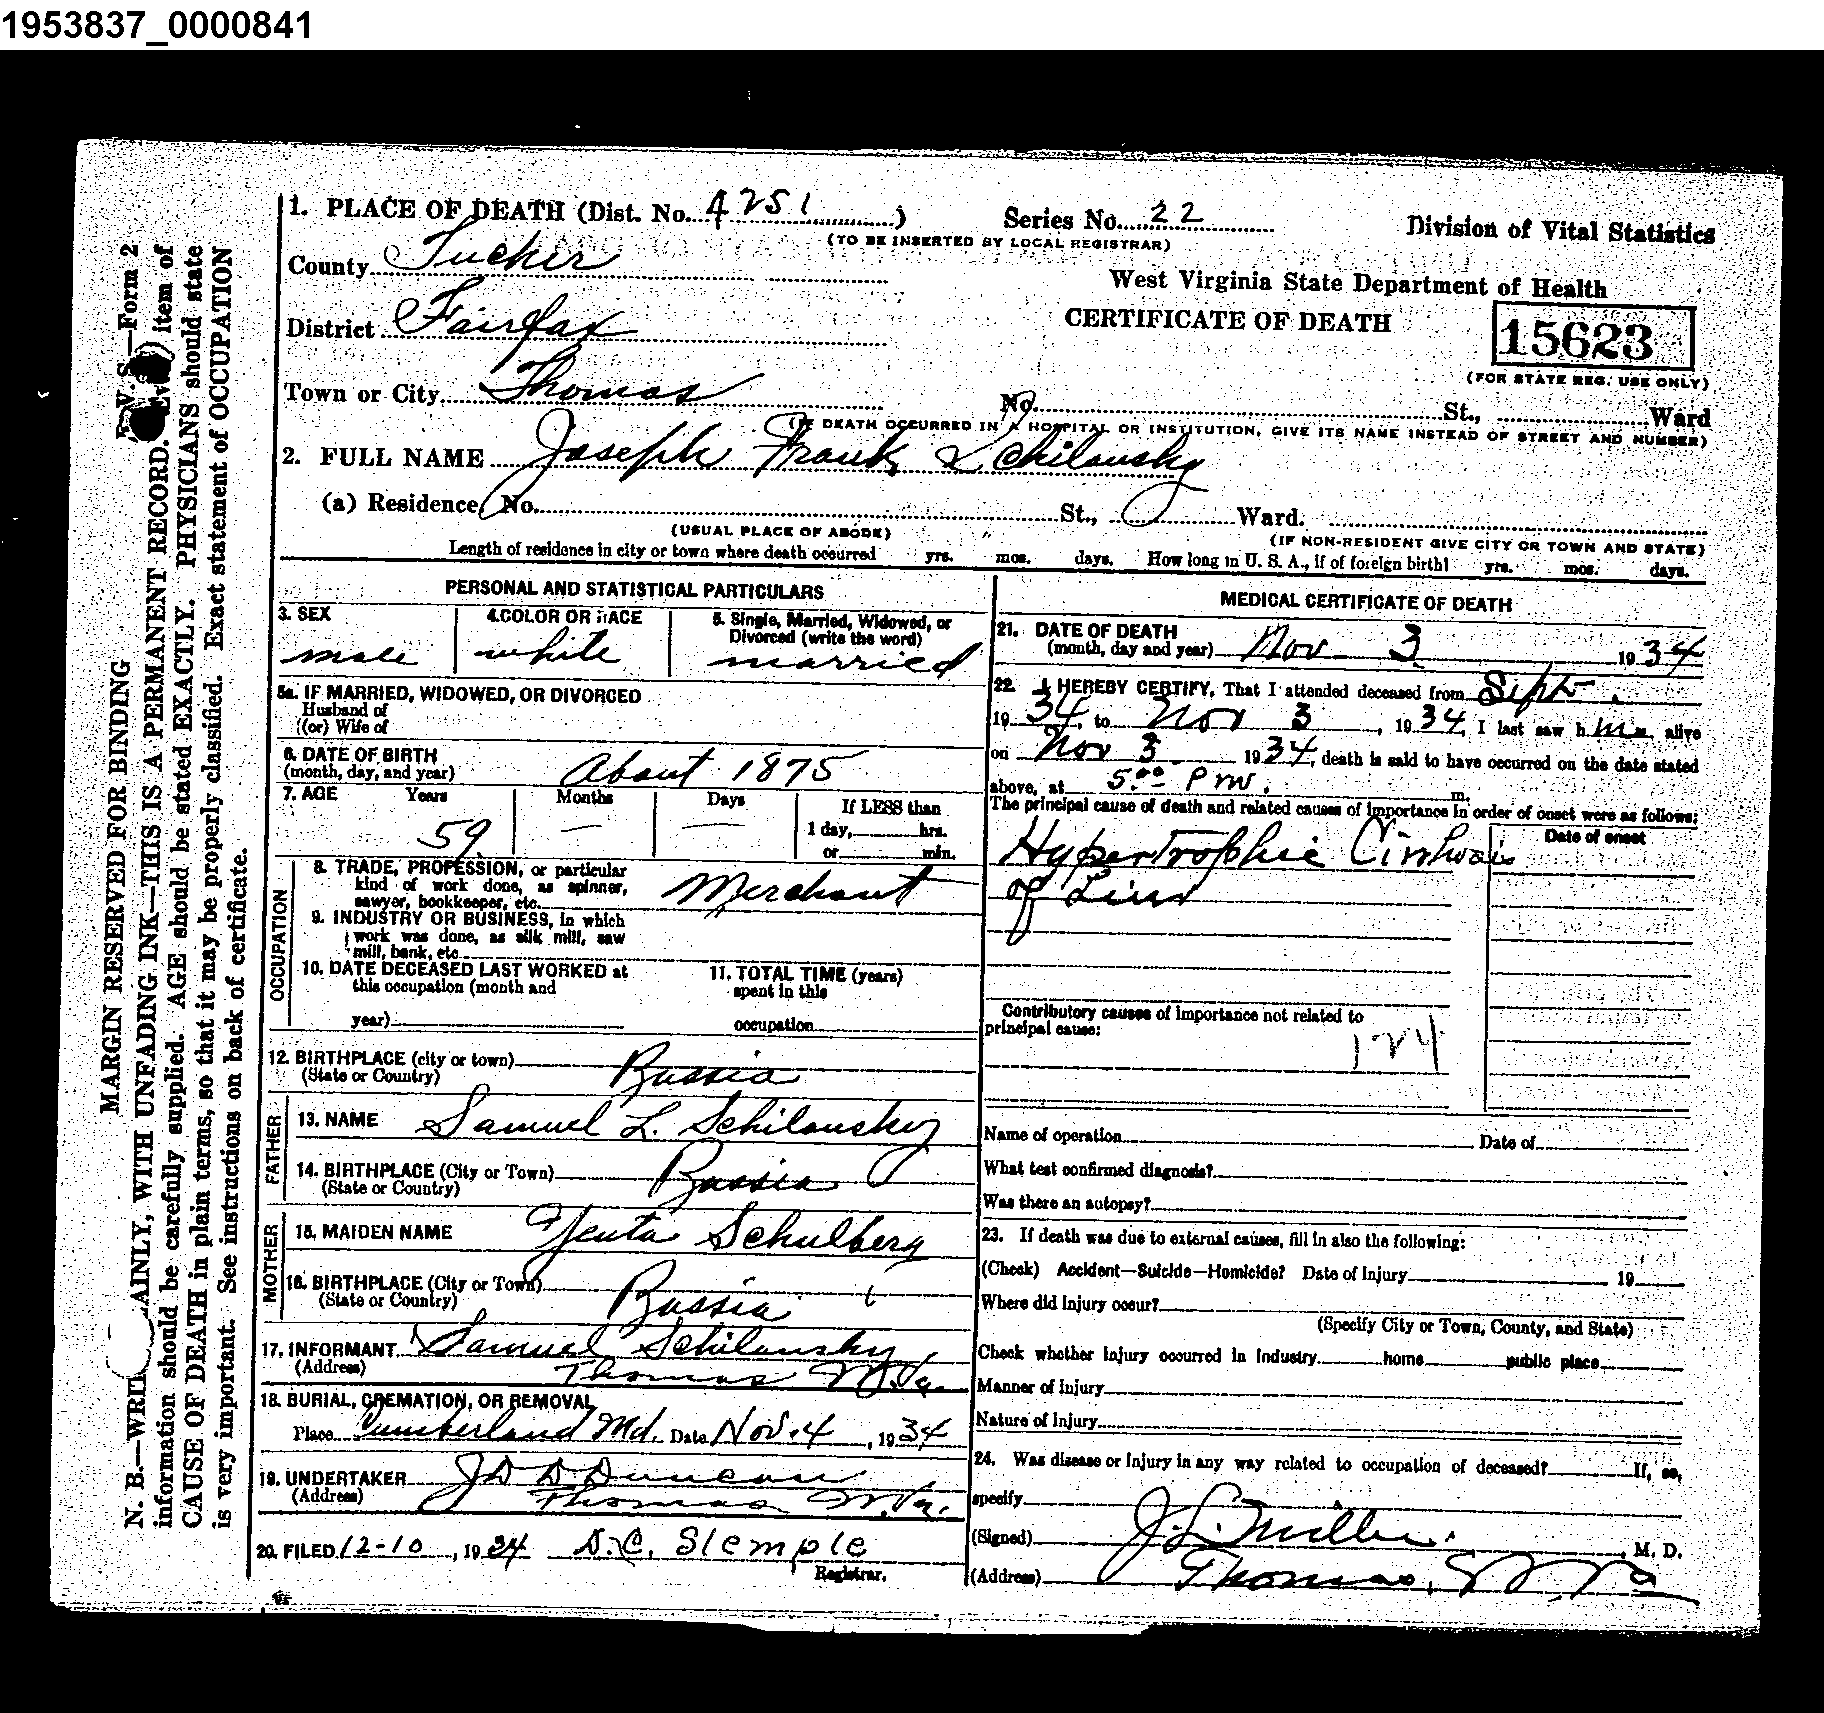 1953837_0000841
1. PLACE OF DEATH (Dist. No. 4251) Series No. 22 Division of Vital Statistics
(TO BE INSERTED BY LOCAL REGISTRAR)
County Tucker
West Virginia State Department of Health
District Fairfax CERTIFICATE OF DEATH 15623
(FOR STATE REG. USE ONLY)
Town or City Thomas No. St., Ward
(IF DEATH OCCURRED IN A HOSPITAL OR INSTITUTION, GIVE ITS NAME INSTEAD OF STREET AND NUMBER)
2. FULL NAME Joseph Frank Schilansky
(a) Residence, No. St., Ward.
(USUAL PLACE OF ABODE) (IF NON-RESIDENT GIVE CITY OR TOWN AND STATE)
Length of residence in city or town where death occurred yrs. mos. days. How long in U. S. A., if of foreign birth? yrs. mos. days.
PERSONAL AND STATISTICAL PARTICULARS
3. SEX 4. COLOR OR RACE 5. Single, Married, Widowed, or
Divorced (write the word)
male white married
5a. IF MARRIED, WIDOWED, OR DIVORCED
Husband of
(or) Wife of
6. DATE OF BIRTH
(month, day, and year) About 1875
7. AGE Years Months Days If LESS than
59 — — 1 day, hrs.
or min.
OCCUPATION
8. TRADE, PROFESSION, or particular
kind of work done, as spinner,
sawyer, bookkeeper, etc. Merchant
9. INDUSTRY OR BUSINESS, in which
work was done, as silk mill, saw
mill, bank, etc
10. DATE DECEASED LAST WORKED at
this occupation (month and
year)
11. TOTAL TIME (years)
spent in this
occupation
12. BIRTHPLACE (city or town)
(State or Country) Russia
FATHER
13. NAME Samuel L. Schilansky
14. BIRTHPLACE (City or Town)
(State or Country) Russia
MOTHER
15. MAIDEN NAME Yenta Schulberg
16. BIRTHPLACE (City or Town)
(State or Country) Russia
17. INFORMANT Samuel Schilansky
(Address) Thomas W.Va.
18. BURIAL, CREMATION, OR REMOVAL
Place Cumberland Md. Date Nov. 4, 1934
19. UNDERTAKER J D D Duncan
(Address) Thomas W.Va.
20. FILED 12-10, 1934 D.C. Slemple
Registrar.
MEDICAL CERTIFICATE OF DEATH
21. DATE OF DEATH
(month, day and year) Nov 3 1934
22. I HEREBY CERTIFY, That I attended deceased from Sept.
1934, to Nov 3, 1934, I last saw him alive
on Nov 3 1934, death is said to have occurred on the date stated
above, at 5:00 Pm. m.
The principal cause of death and related causes of importance in order of onset were as follows:
Date of onset
Hypertrophic Cirrhosis
of Liver
Contributory causes of importance not related to
principal cause:
124
Name of operation Date of
What test confirmed diagnosis?
Was there an autopsy?
23. If death was due to external causes, fill in also the following:
(Check) Accident—Suicide—Homicide? Date of Injury 19
Where did Injury occur?
(Specify City or Town, County, and State)
Check whether injury occurred in Industry home public place
Manner of Injury
Nature of Injury
24. Was disease or Injury in any way related to occupation of deceased? If, so,
specify
(Signed) J.L. Miller. M. D.
(Address) Thomas, W Va
MARGIN RESERVED FOR BINDING
V. S.—Form 2
N. B.—WRITE PLAINLY, WITH UNFADING INK—THIS IS A PERMANENT RECORD. Every item of
information should be carefully supplied. AGE should be stated EXACTLY. PHYSICIANS should state
CAUSE OF DEATH in plain terms, so that it may be properly classified. Exact statement of OCCUPATION
is very important. See instructions on back of certificate.